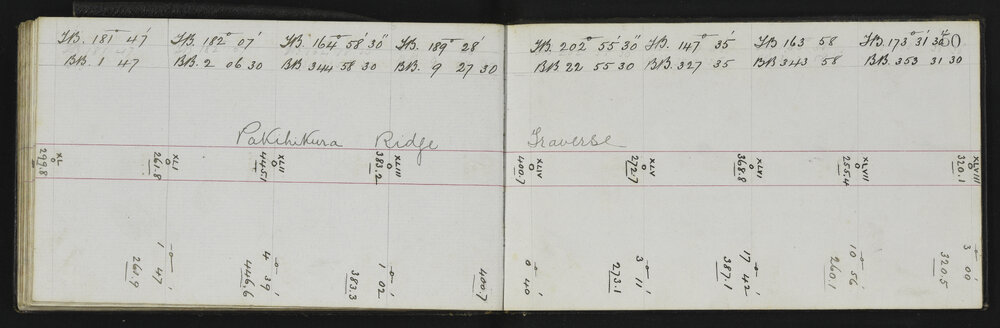 FB. 181° 47' FB. 182° 07' FB. 164° 58' 30" FB. 189° 28' FB. 202° 55' 30" FB. 147° 35' FB 163 58 FB. 173° 31' 30"
BB. 1 47 BB. 2 06 30 BB 344 58 30 BB. 9 27 30 BB 22 55 30 BB. 327 35 BB 343 58 BB. 353 31 30
50
Pakihikura Ridge Traverse
XL
299.8
XLI
261.8
XLII
445.1
XLIII
383.2
XLIV
400.7
XLV
272.7
XLVI
368.8
XLVII
255.4
XLVIII
320.1
1 47'
261.9
4 39'
446.6
1 02'
383.3
400.7
0 40'
3 11'
273.1
17 42'
387.1
10 56'
260.1
3 00'
320.5